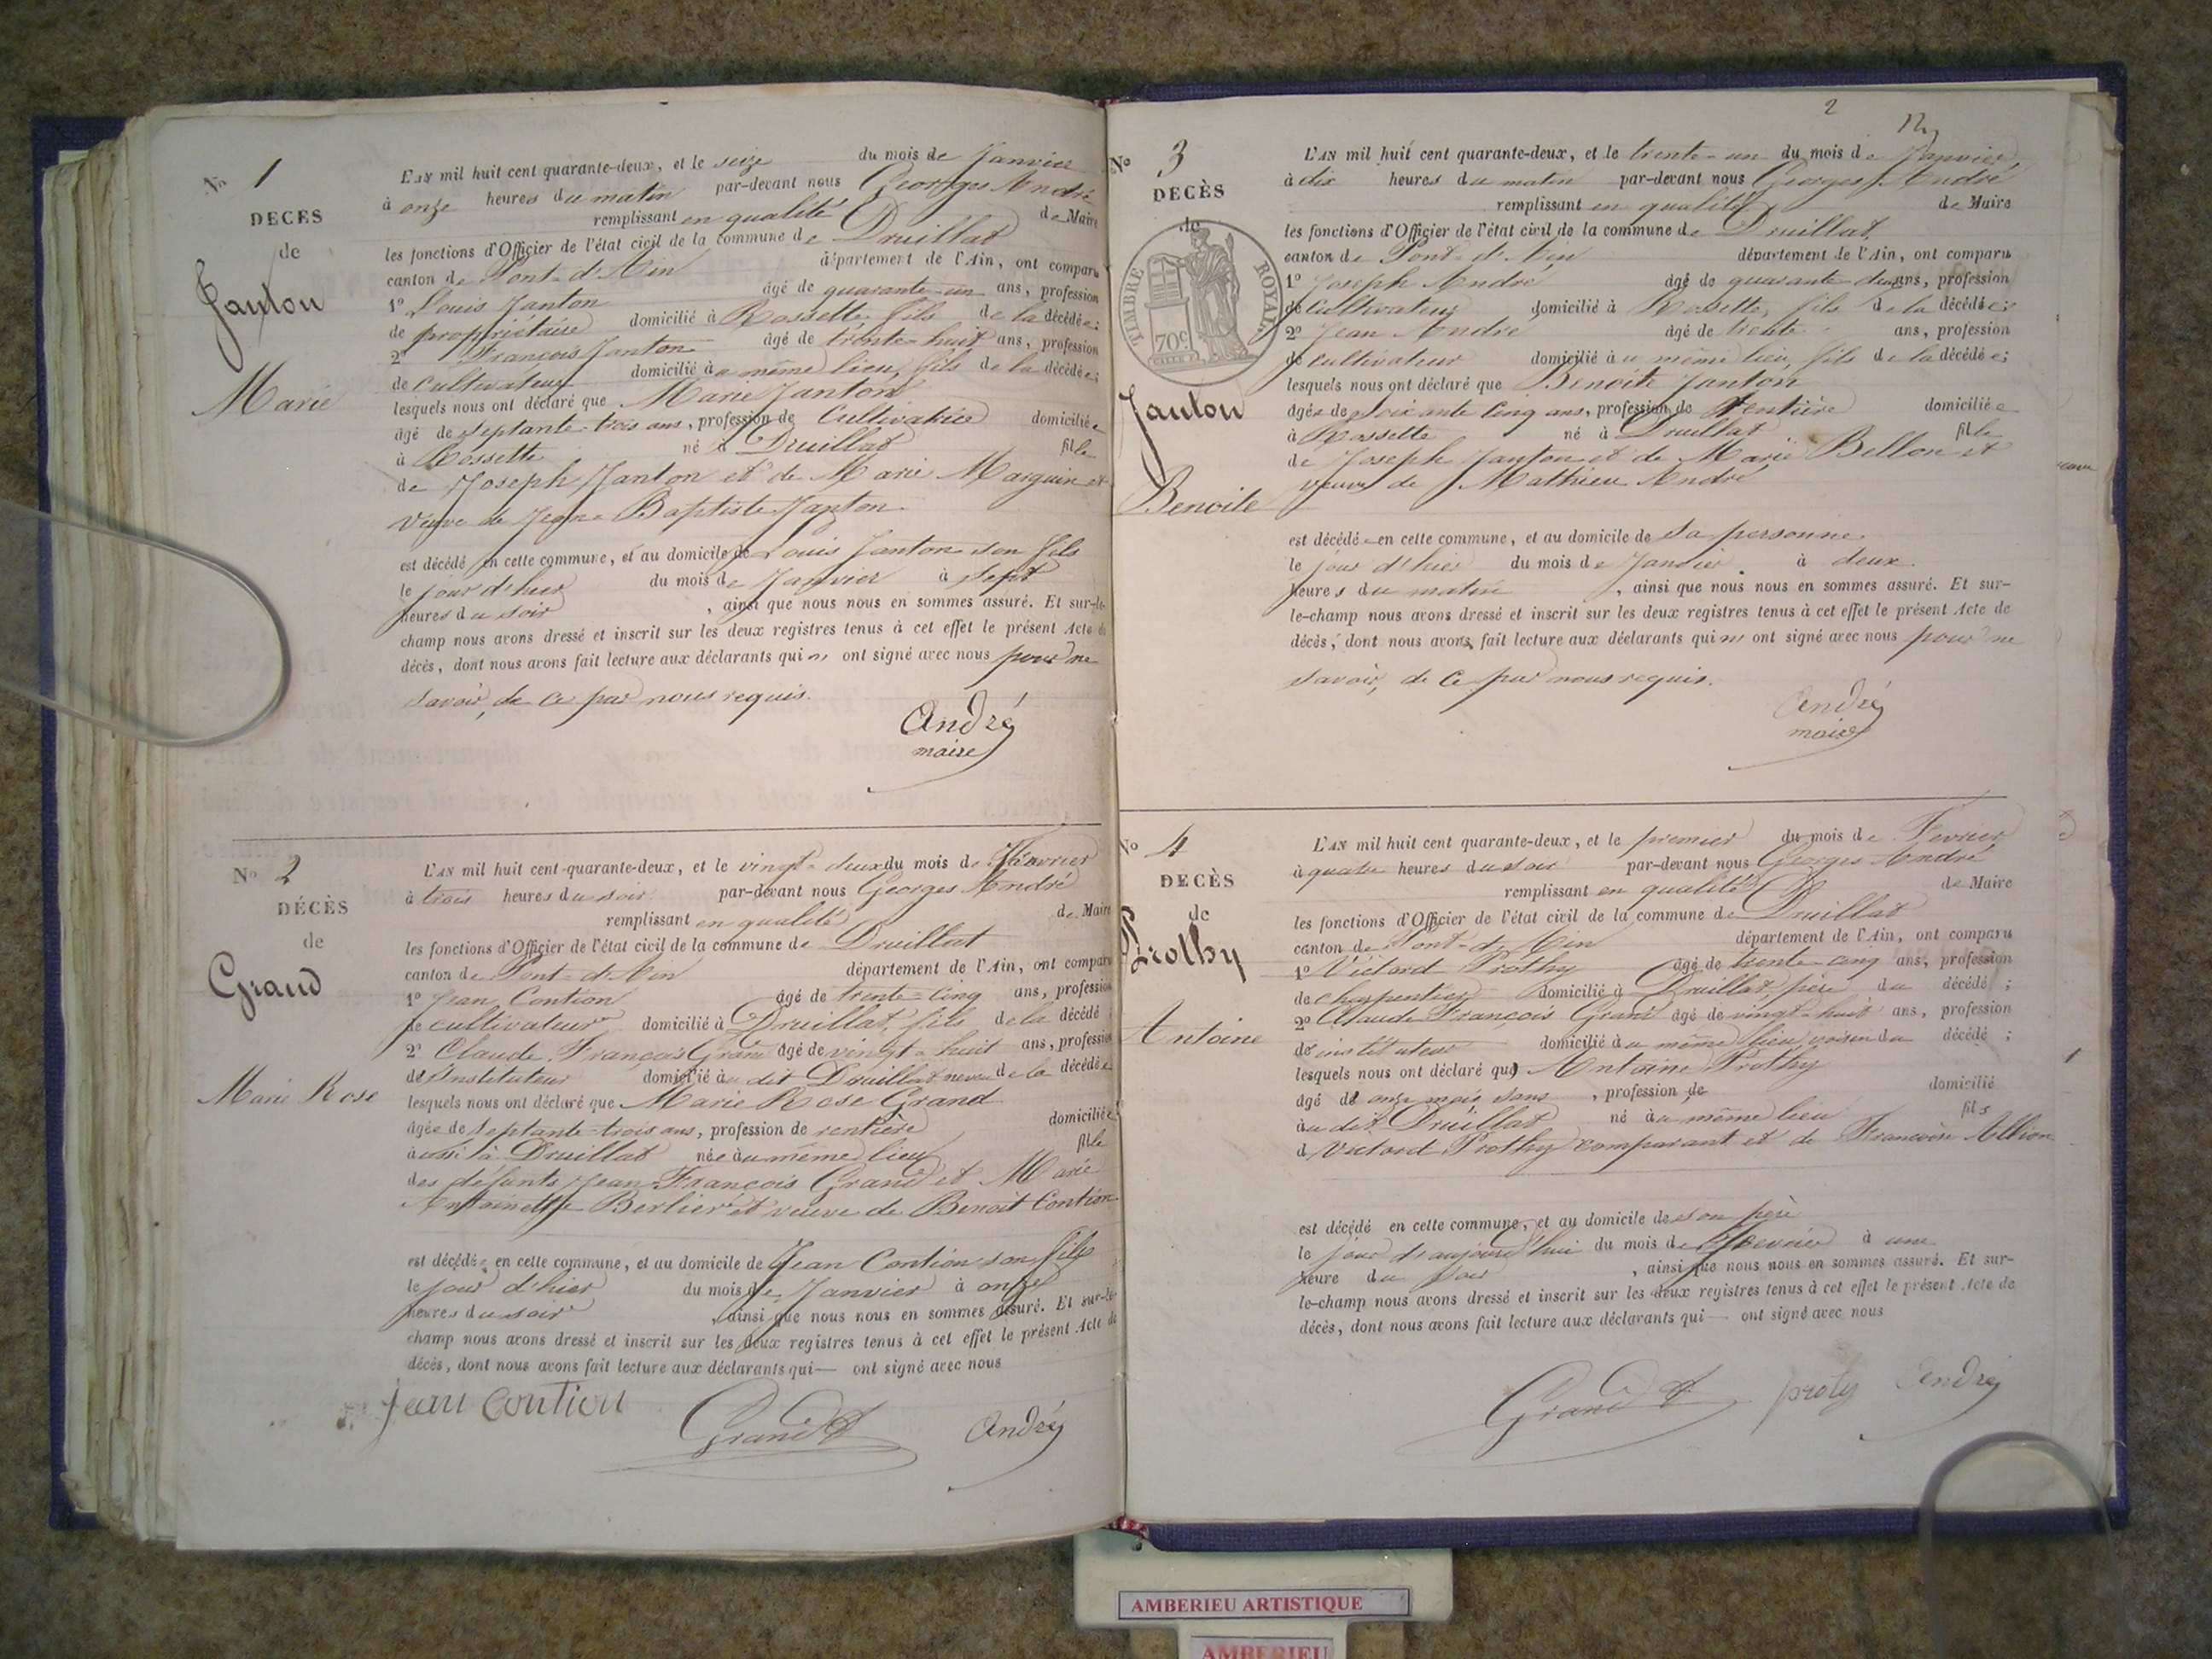 No 1
DECES
de
Janton
Marie
L'AN mil huit cent quarante-deux, et le seize du mois de Janvier
à onze heures du matin par-devant nous Georges André
remplissant en qualité de Maire
les fonctions d'Officier de l'état civil de la commune de Druillat
canton de Pont-d'Ain département de l'Ain, ont comparu
1o Louis Janton âgé de quarante-un ans, profession
de propriétaire domicilié à Rossette, fils de la décédée;
2o François Janton âgé de trente-huit ans, profession
de cultivateur domicilié au même lieu, fils de la décédée;
lesquels nous ont déclaré que Marie Janton
âgé de septante-trois ans, profession de Cultivatrice domiciliée
à Rossette né à Druillat fille
de Joseph Janton et de Marie Marguin et
veuve de Jean-Baptiste Janton.
est décédé en cette commune, et au domicile de Louis Janton son fils
le jour d'hier du mois de Janvier à sept
heures du soir, ainsi que nous nous en sommes assuré. Et sur-le-
champ nous avons dressé et inscrit sur les deux registres tenus à cet effet le présent Acte de
décès, dont nous avons fait lecture aux déclarants qui n' ont signé avec nous pour ne
savoir, de ce par nous requis.
André
maire
No 2
DÉCÈS
de
Grand
Marie Rose
L'AN mil huit cent quarante-deux, et le vingt-deux du mois de
à trois heures du soir par-devant nous Georges André
remplissant en qualité de Maire
les fonctions d'Officier de l'état civil de la commune de Druillat
canton de Pont-d'Ain département de l'Ain, ont comparu
1o Jean Contion âgé de trente-cinq ans, profession
de cultivateur domicilié à Druillat, fils de la décédé;
2o Claude François Grand âgé de vingt-huit ans, profession
de Instituteur domicilié au dit Druillat neveu de la décédée
lesquels nous ont déclaré que Marie Rose Grand
âgée de septante-trois ans, profession de rentière domiciliée
aussi à Druillat née au même lieu fille
des défunts Jean-François Grand et Marie
Antoinette Berlier et veuve de Benoit Contion
est décédée en cette commune, et au domicile de Jean Contion son fils
le jour d'hier du mois de Janvier à onze
heures du soir, ainsi que nous nous en sommes assuré. Et sur-le-
champ nous avons dressé et inscrit sur les deux registres tenus à cet effet le présent Acte de
décès, dont nous avons fait lecture aux déclarants qui — ont signé avec nous
Jean Contion Grand André
2
No 3
DECÈS
de
TIMBRE ROYAL
70c
Janton
Benoite
L'AN mil huit cent quarante-deux, et le trente-un du mois de Janvier,
à dix heures du matin par-devant nous Georges André
remplissant en qualité de Maire
les fonctions d'Officier de l'état civil de la commune de Druillat,
canton de Pont-d'Ain département de l'Ain, ont comparu
1o Joseph André âgé de quarante deux ans, profession
de Cultivateur domicilié à Rossette, fils de la décédée;
2o Jean André âgé de trente ans, profession
de cultivateur domicilié au même lieu, fils de la décédée;
lesquels nous ont déclaré que Benoite Janton
âgée de soixante cinq ans, profession de Rentière domiciliée
à Rossette né à Druillat fille
de Joseph Janton et de Marie Bellon et
veuve de Mathieu André
est décédée en cette commune, et au domicile de sa personne
le jour d'hier du mois de Janvier à deux
heures du matin, ainsi que nous nous en sommes assuré. Et sur-
le-champ nous avons dressé et inscrit sur les deux registres tenus à cet effet le présent Acte de
décès, dont nous avons fait lecture aux déclarants qui n' ont signé avec nous pour ne
savoir, de ce par nous requis.
André
maire
No 4
DECÈS
de
Prothy
Antoine
L'AN mil huit cent quarante-deux, et le premier du mois de Fevrier
à quatre heures du soir par-devant nous Georges André
remplissant en qualité de Maire
les fonctions d'Officier de l'état civil de la commune de Druillat
canton de Pont-d'Ain département de l'Ain, ont comparu
1o Victord Prothy âgé de trente-cinq ans, profession
de charpentier domicilié à Druillat, père du décédé;
2o Claude François Grand âgé de vingt-huit ans, profession
de instituteur domicilié au même lieu, voisin du décédé;
lesquels nous ont déclaré que Antoine Prothy
âgé de onze mois sans, profession de domicilié
au dit Druillat né au même lieu fils
d Victord Prothy comparant et de Françoise
est décédé en cette commune, et au domicile de son père
le jour d'aujourd'hui du mois de Fevrier à une
heure du soir, ainsi que nous nous en sommes assuré. Et sur-
le-champ nous avons dressé et inscrit sur les deux registres tenus à cet effet le présent Acte de
décès, dont nous avons fait lecture aux déclarants qui — ont signé avec nous
Grand proty André
AMBERIEU ARTISTIQUE
AMBERIEU